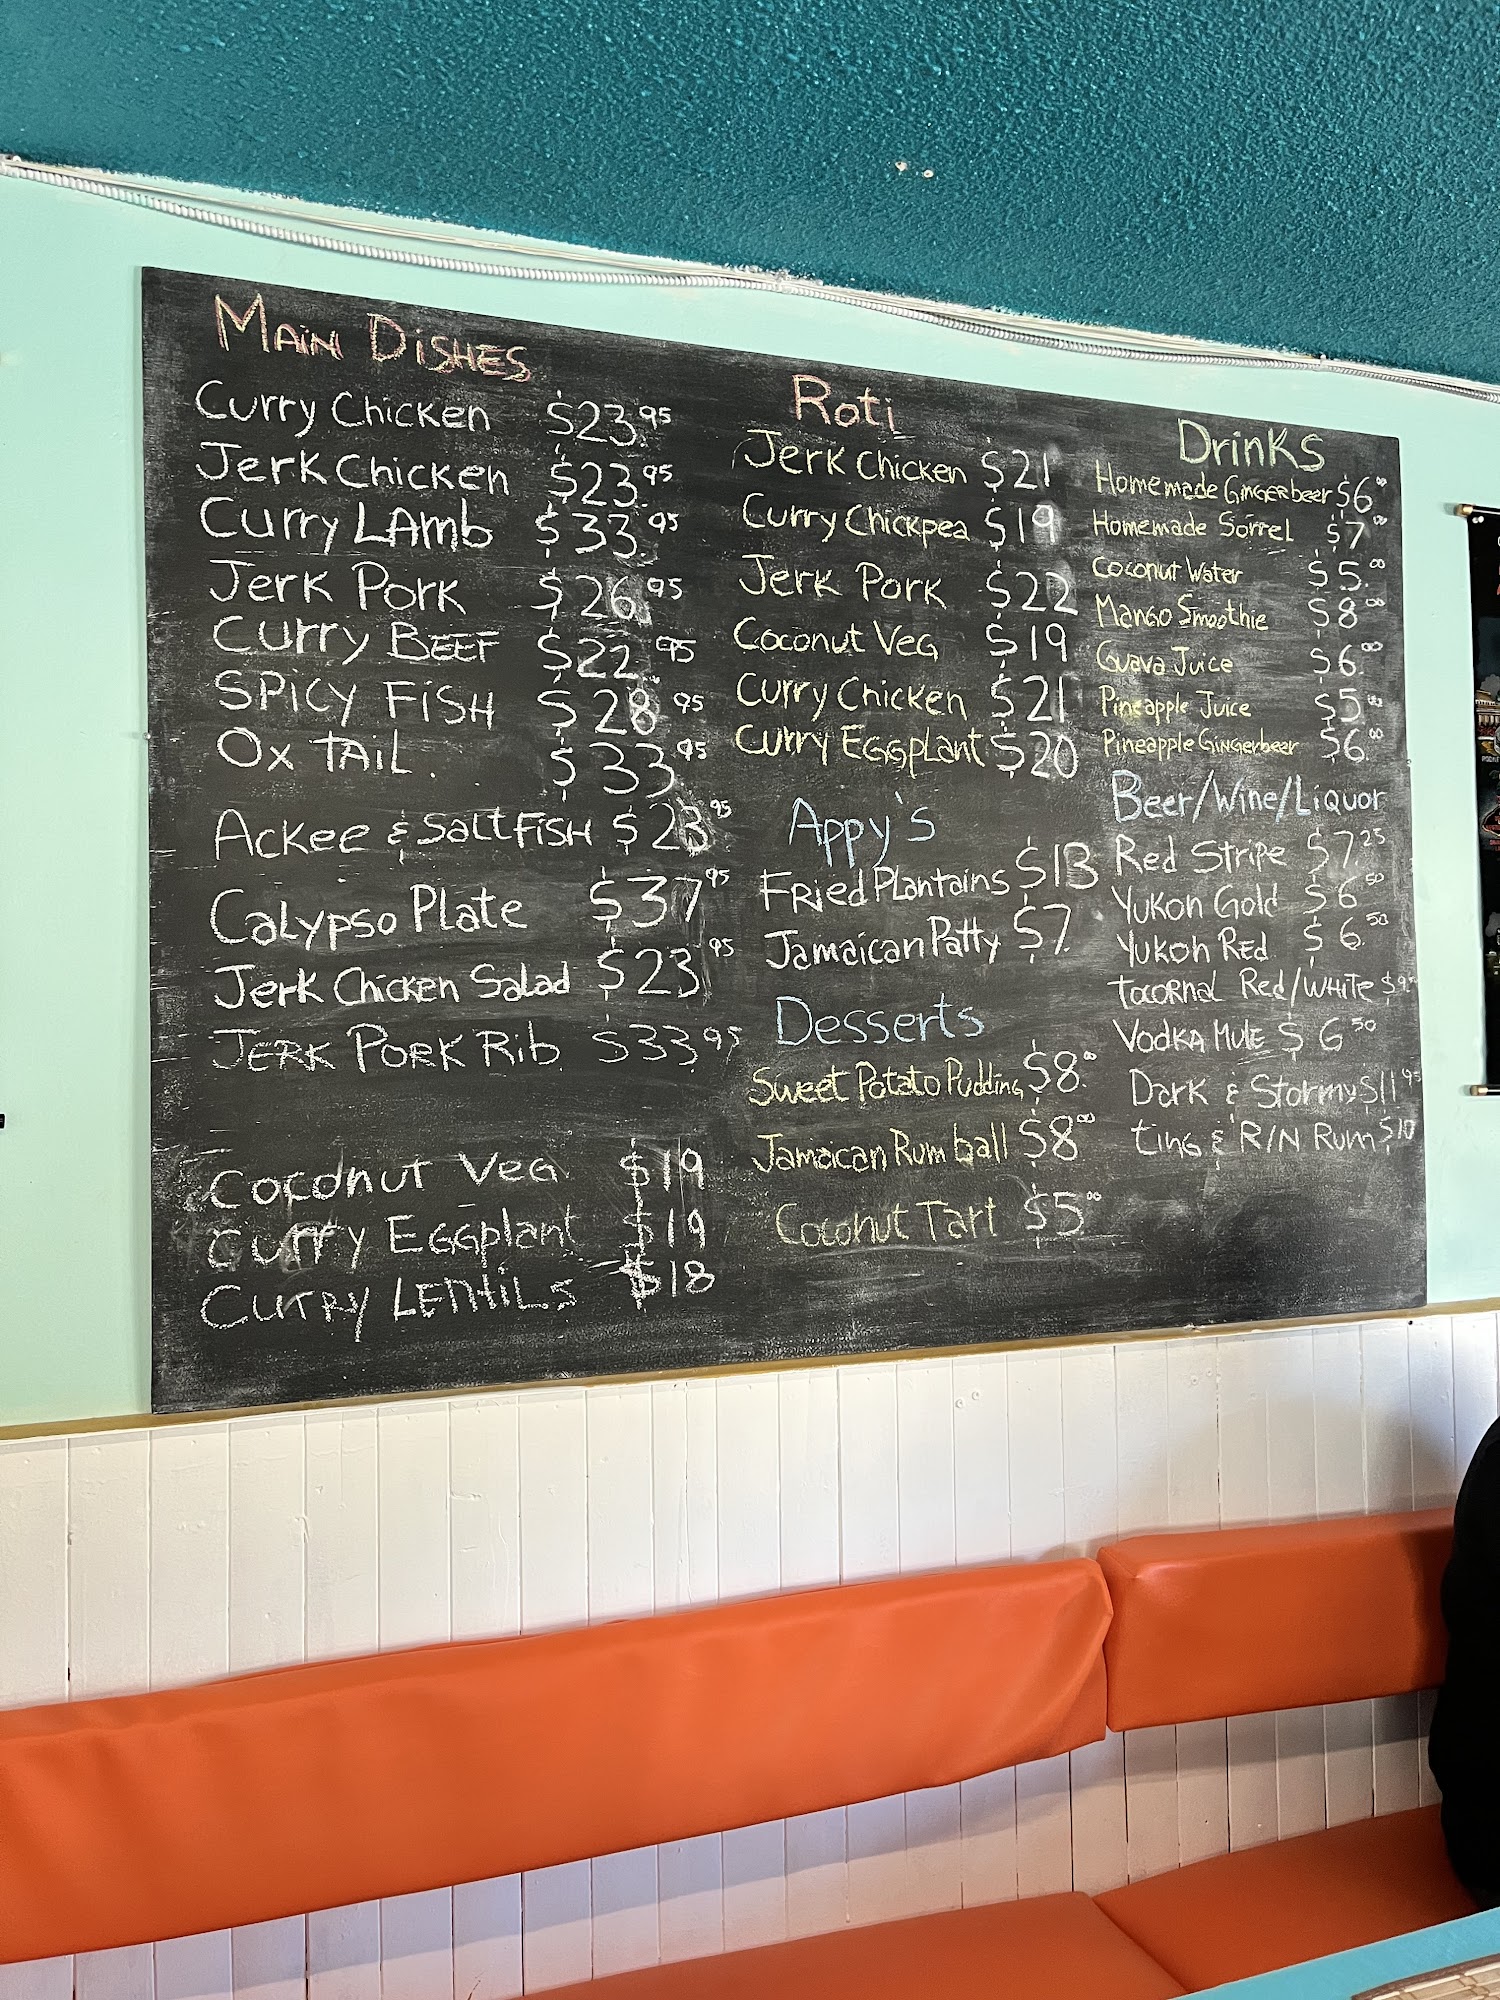 Main Dishes
Curry Chicken $23.95
Jerk Chicken $23.95
Curry Lamb $33.95
Jerk Pork $26.95
Curry Beef $22.95
Spicy Fish $28.95
Ox Tail. $33.95
Ackee & Saltfish $23.95
Calypso Plate $37.95
Jerk Chicken Salad $23.95
Jerk Pork Rib $33.95
Coconut Veg $19
Curry Eggplant $19
Curry Lentils $18
Roti
Jerk Chicken $21
Curry Chickpea $19
Jerk Pork $22
Coconut Veg $19
Curry Chicken $21
Curry Eggplant $20
Appy's
Fried Plantains $13
Jamaican Patty $7
Desserts
Sweet Potato Pudding $8.00
Jamaican Rum ball $8.00
Coconut Tart $5.00
Drinks
Homemade Gingerbeer $6.00
Homemade Sorrel $7.00
Coconut Water $5.00
Mango Smoothie $8.00
Guava Juice $6.00
Pineapple Juice $5.00
Pineapple Gingerbeer $6.00
Beer/Wine/Liquor
Red Stripe $7.25
Yukon Gold $6.50
Yukon Red $6.50
Tocornal Red/White
Vodka Mule $6.50
Dark & Stormy $11.95
Ting & R/N Rum $10